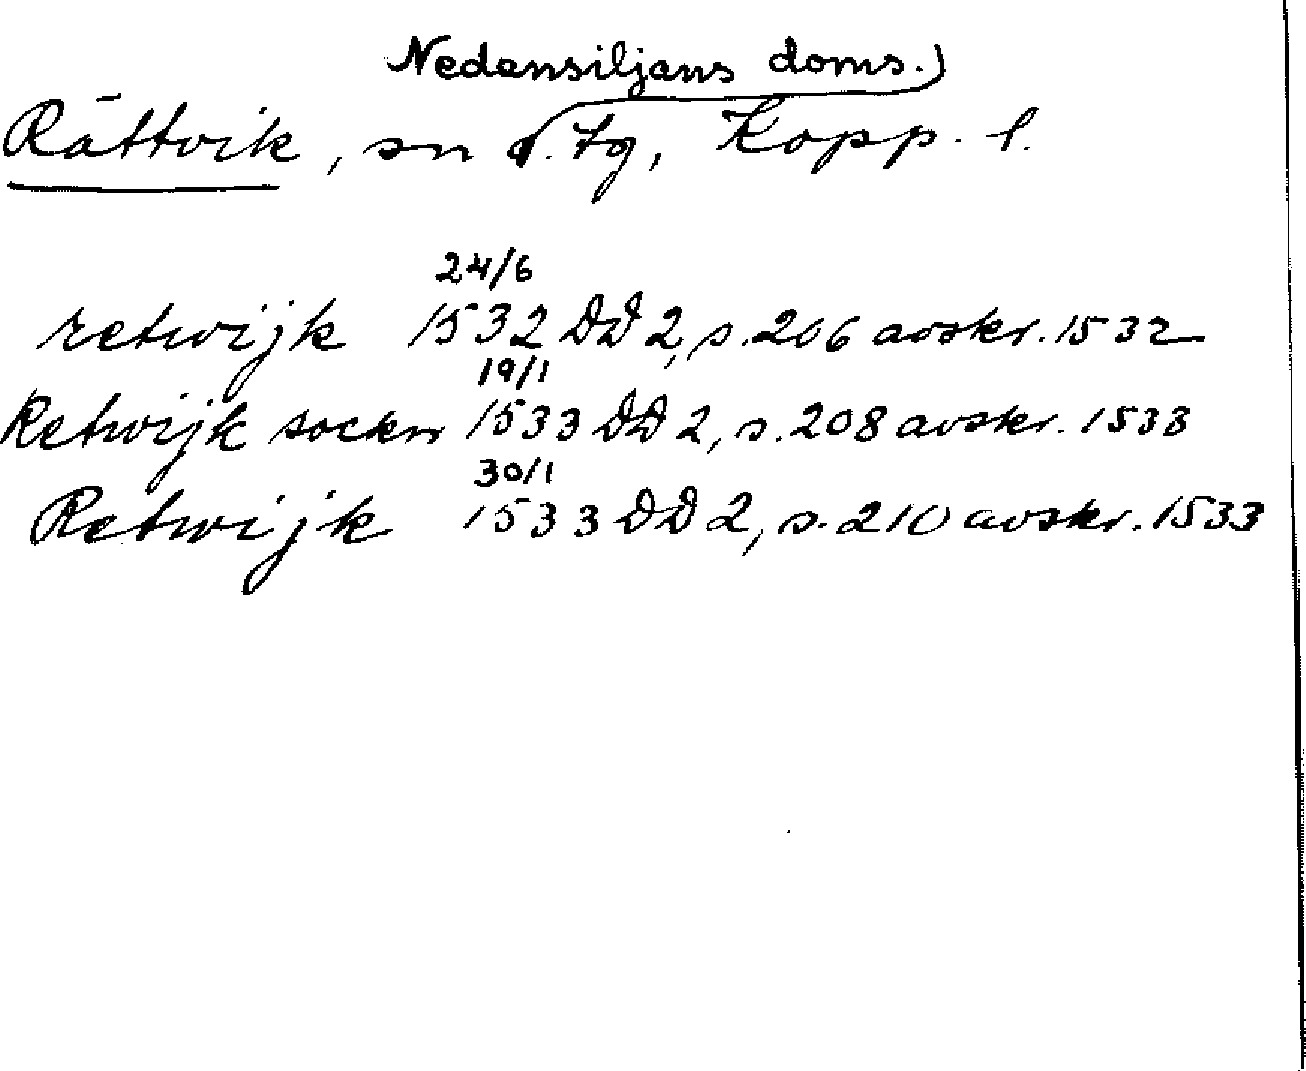 Nedansiljans doms.)
Rättvik, sn o. tg, Kopp. l.
24/6
retwijk 1532 DD 2, s. 206 avskr. 1532
19/1
Retwijk sockn 1533 DD 2, s. 208 avskr. 1533
30/1
Retwijk 1533 DD 2, s. 210 avskr. 1533